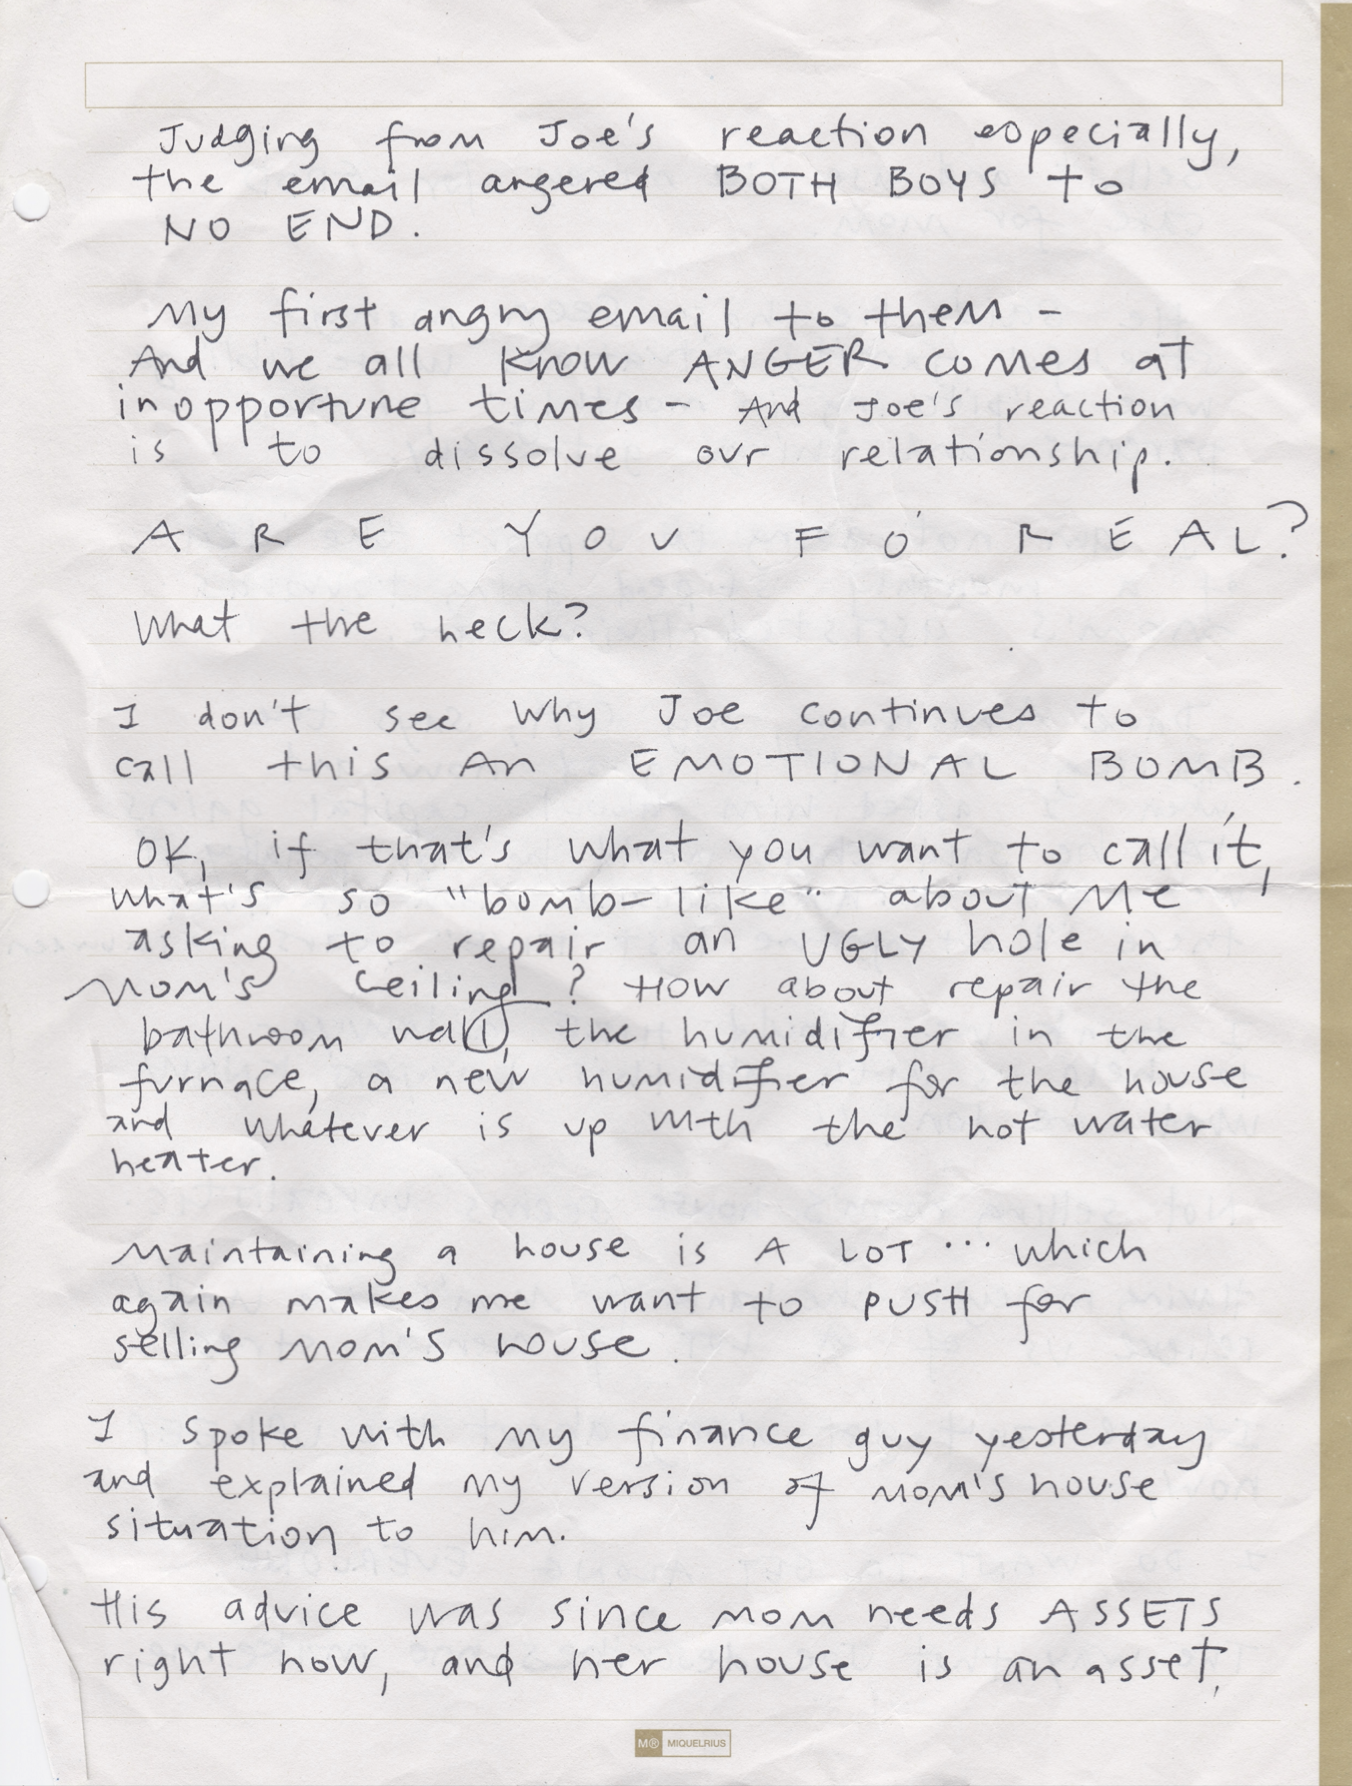 Judging from Joe's reaction especially,
the email angered BOTH BOYS to
NO END.
My first angry email to them -
And we all know ANGER comes at
inopportune times - And Joe's reaction
is to dissolve our relationship.
A R E Y O U F O' R E A L ?
What the heck?
I don't see why Joe continues to
call this An EMOTIONAL BOMB.
OK, if that's what you want to call it,
what's so "bomb-like" about Me
asking to repair an UGLY hole in
MOM'S ceiling? How about repair the
bathroom wall, the humidifier in the
furnace, a new humidifier for the house
and whatever is up with the hot water
heater.
Maintaining a house is A LOT ... which
again makes me want to PUSH for
selling MOM'S house.
I spoke with my finance guy yesterday
and explained my version of MOM'S house
situation to him.
His advice was since mom needs ASSETS
right now, and her house is an asset,
M® MIQUELRIUS